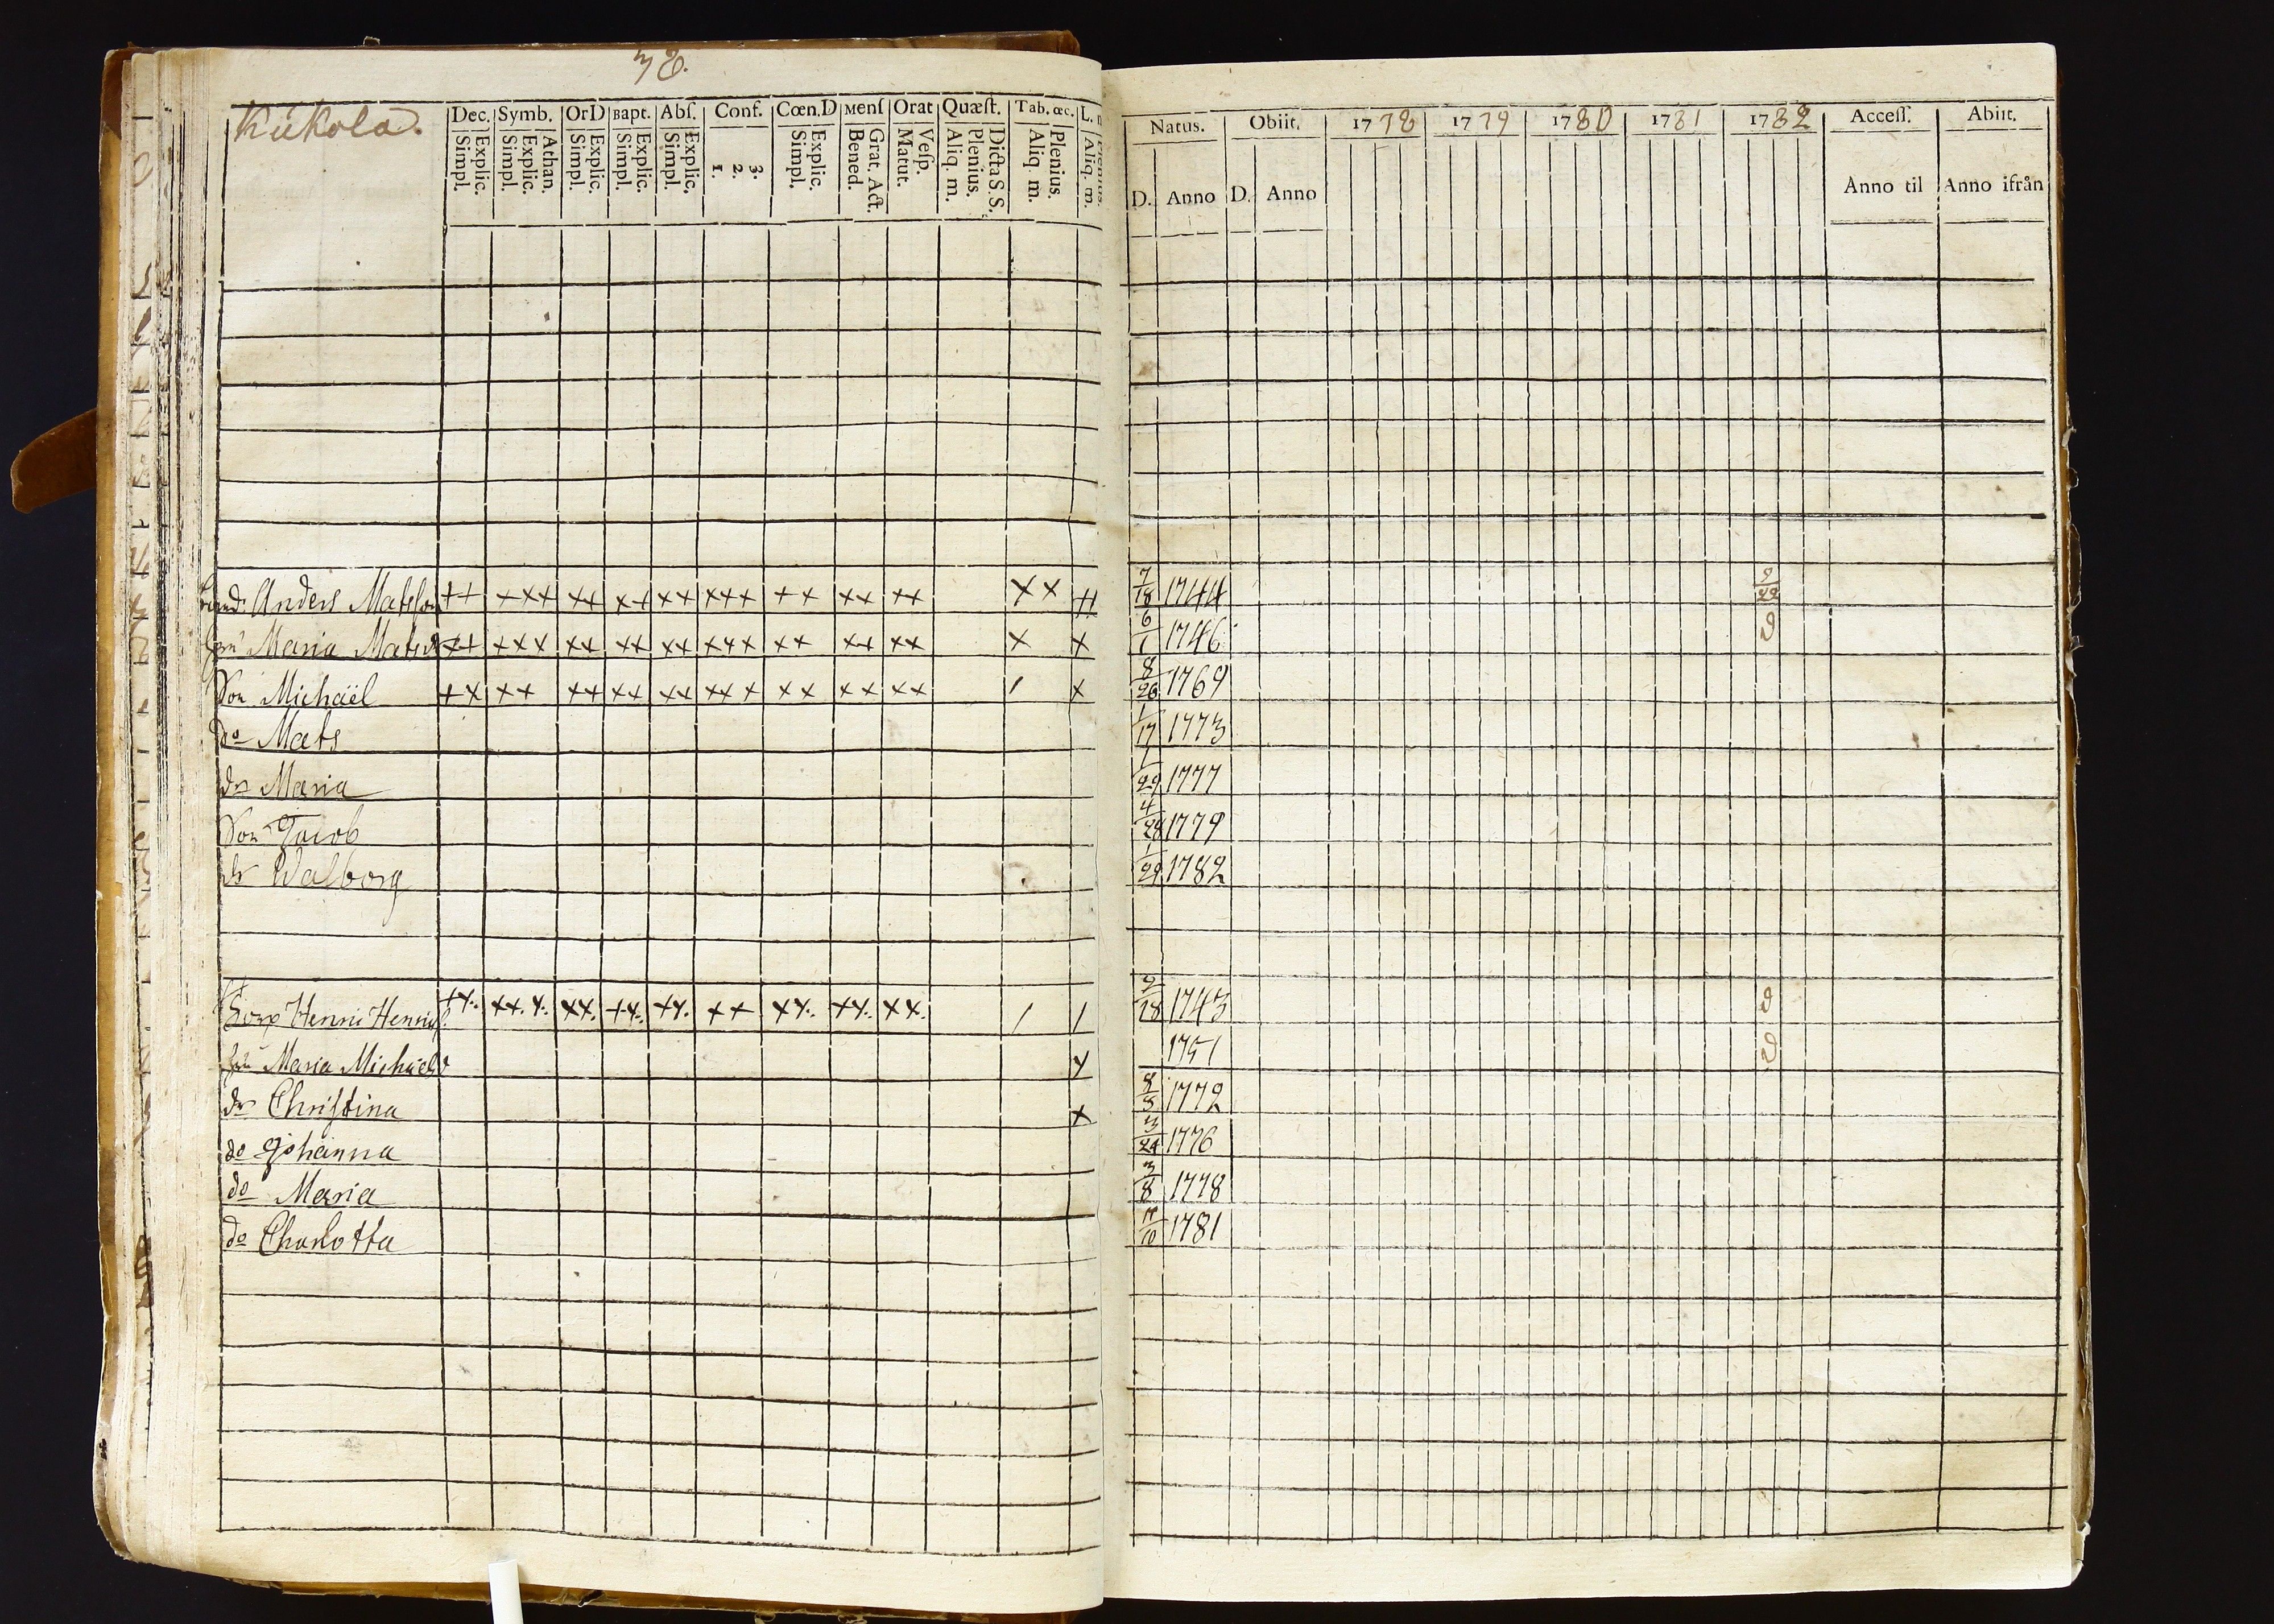 78.
Kükola.
Dec. Symb. OrD Bapt. Abſ. Conf. Cœn.D Menſ Orat Quæſt. Tab. œc. L.
Explic. Simpl. Athan. Explic. Simpl. Explic. Simpl. Explic. Simpl. Explic. Simpl. 3. 2. 1. Explic. Simpl. Grat. Act. Bened. Veſp. Matut. Dicta S. S. Plenius. Aliq. m. Plenius. Aliq. m. Plenius. Aliq. m.
Natus. Obiit. 1778 1779 1780 1781 1782 Acceſſ. Abiit.
D. Anno D. Anno Anno til Anno ifrån
Bond. Anders Matsſon ++ +++ ++ ++ ++ +++ ++ ++ ++ ×× ++ 7/18 1744 2/22
hru Maria Matsd ++ +++ ++ ++ ++ +++ ++ ++ ++ × × 6/1 1746
Son Michaël ++ ++ ++ ++ ++ +++ ++ ++ ++ / × 8/26 1769
do Mats 1/17 1773
dr Maria 1/29 1777
Son Jacob 4/28 1779
dr Walborg 1/29 1782
Henric Henricſ. ++. ++.+. ++. ++. ++. ++ ++. ++. ++. / / 2/18 1743
hru Maria Michaelsd × 1751
dr Chriſtina × 8/5 1772
do Johanna 3/24 1776
do Maria 3/8 1778
do Charlotta 11/10 1781